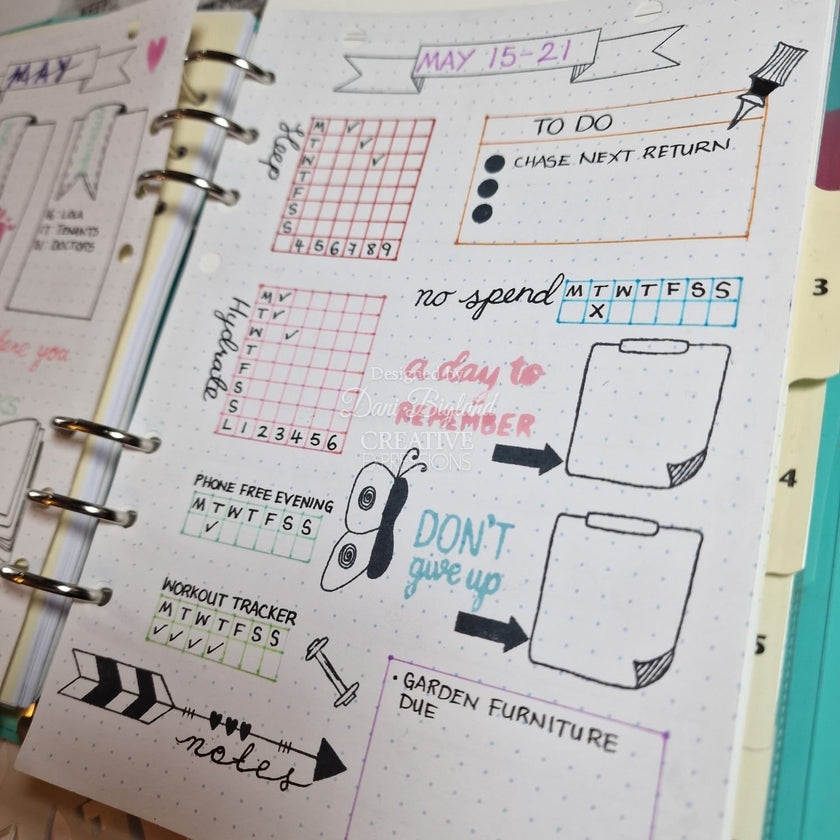 MAY
16: LOLA
17: TENANTS
DOCTORS
MAY 15-21
Sleep
M ✓
T ✓
W ✓
T
F
S
S
4 5 6 7 8 9
TO DO
CHASE NEXT RETURN
no spend
M T W T F S S
X
Hydrate
M ✓
T ✓
W ✓
T
F
S
S
L 1 2 3 4 5 6
a day to
REMEMBER
Designed by
Dani Bigland
CREATIVE
EXPRESSIONS
PHONE FREE EVENING
M T W T F S S
✓
DON'T
give up
WORKOUT TRACKER
M T W T F S S
✓ ✓ ✓ ✓
notes
• GARDEN FURNITURE
DUE
3
4
5